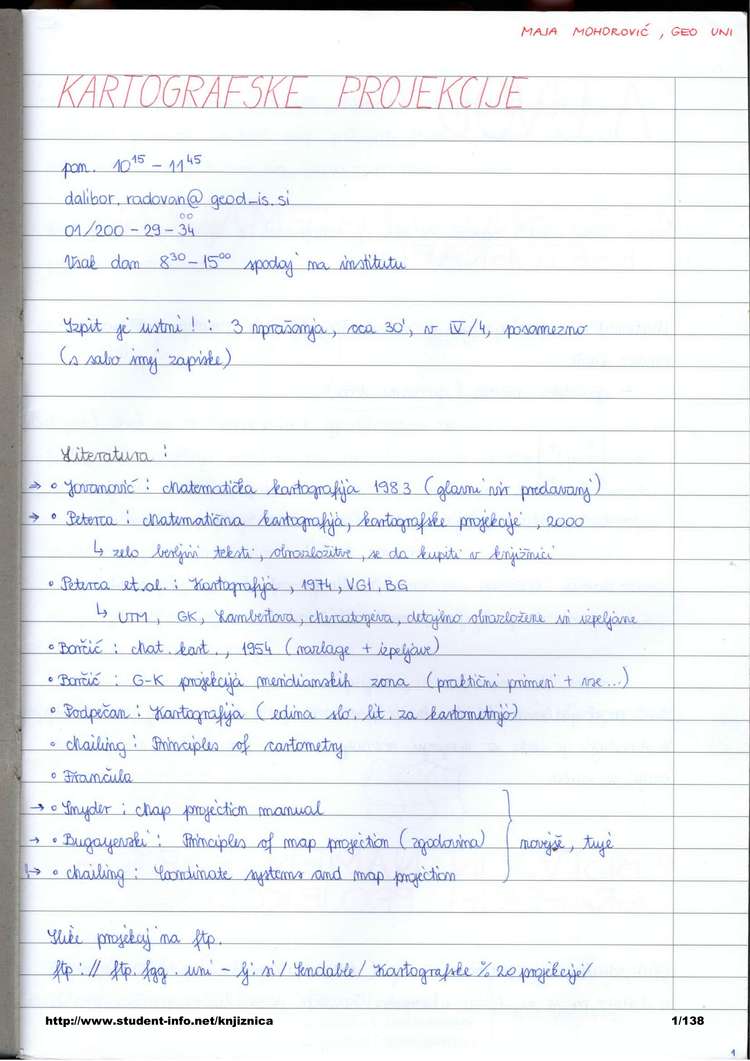 MAJA MOHOROVIĆ, GEO UNI
KARTOGRAFSKE PROJEKCIJE
pon. 10¹⁵ - 11⁴⁵
dalibor.radovan@geod-is.si
00
01/200-29-34
Vsak dan 8³⁰-15⁰⁰ spodaj na institutu
Izpit je ustni! : 3 vprašanja, cca 30', v IV/4, posamezno
(s sabo imej zapiske)
Literatura:
→ • Jovanović: Matematička kartografija 1983 (glavni vir predavanj)
→ • Peterca: Matematična kartografija, kartografske projekcije, 2000
↳ zelo berljivi teksti, obrazložitve, se da kupiti v knjižnici
• Peterca et.al.: Kartografija, 1974, VGI, BG
↳ UTM, GK, Lambertova, Mercatorjeva, detajlno obrazložene in izpeljane
• Borčić: Mat. kart., 1954 (razlage + izpeljave)
• Borčić: G-K projekcija meridianskih zona (praktični primeri + vse...)
• Podpečan: Kartografija (edina slo. lit. za kartometrijo)
• Mailing: Principles of cartometry
• Frančula
→ • Snyder: Map projection manual
→ • Bugayevski: Principles of map projection (zgodovina)
novejše, tuje
↳ • Mailing: Coordinate systems and map projection
Slike projekcij na ftp.
ftp://ftp.fgg.uni-lj.si/Sendable/Kartografske%20projekcije/
http://www.student-info.net/knjiznica
1/138
1